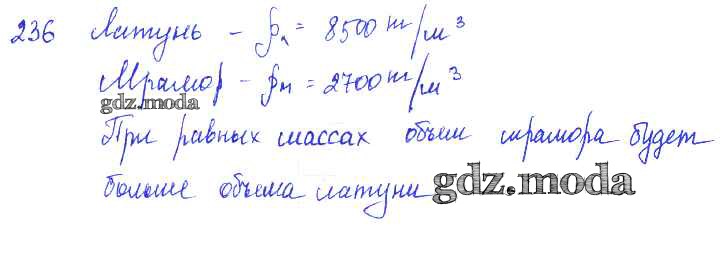 236 Латунь - ρл = 8500 кг/м³
Мрамор - ρм = 2700 кг/м³
gdz.moda
При равных массах объем мрамора будет
больше объема латуни gdz.moda